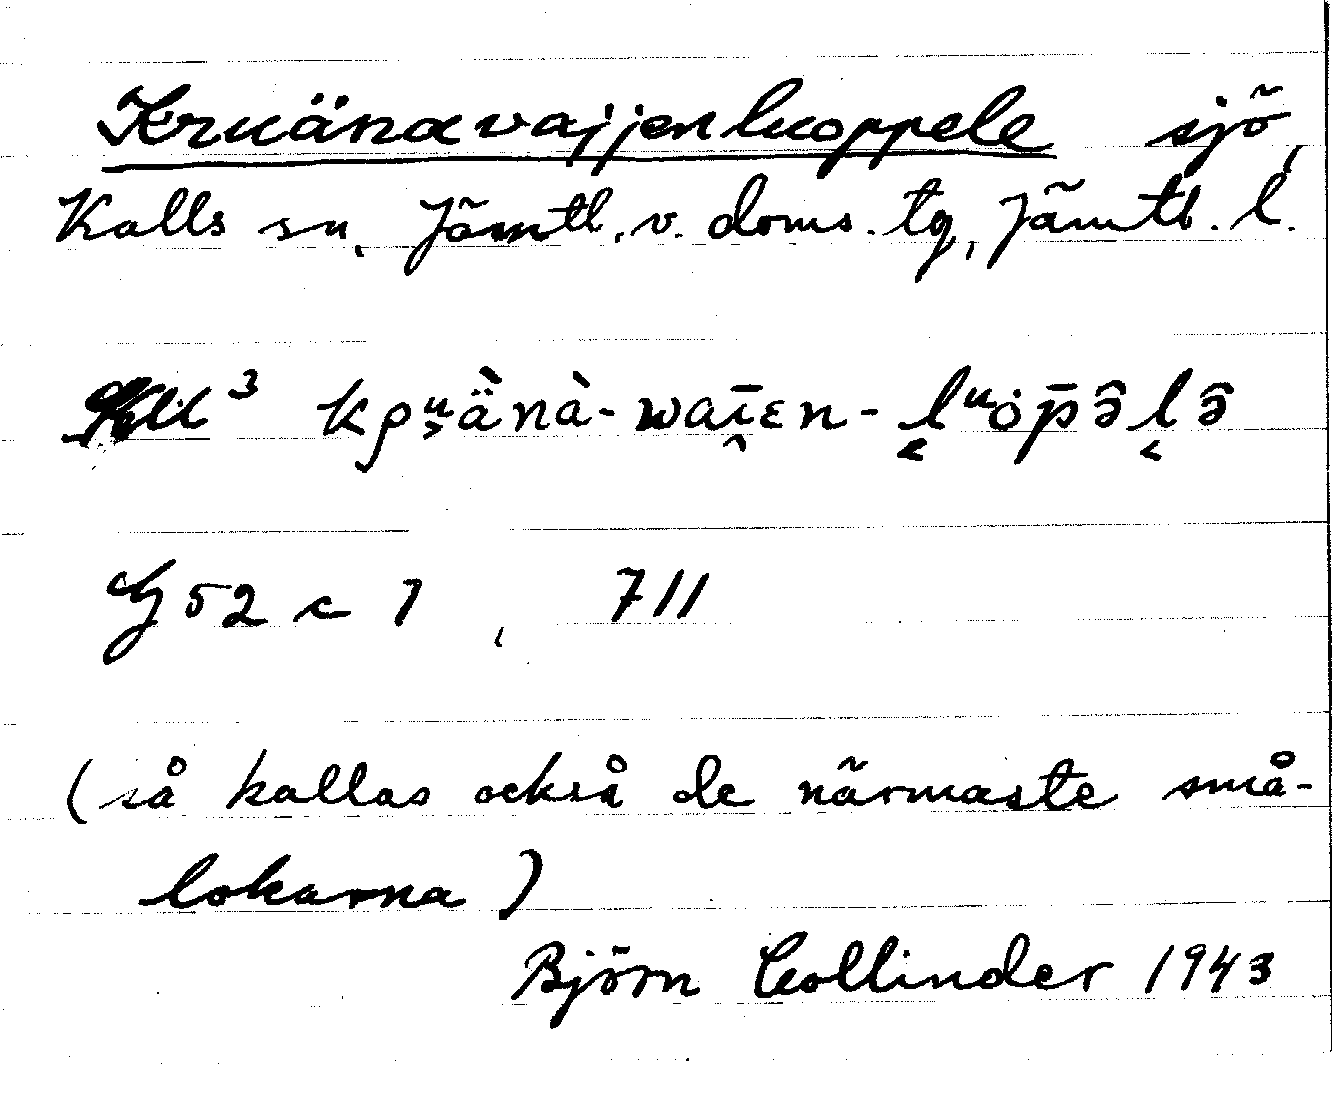 Kruänavajjenluoppele sjö,
Kalls sn, Jämtl. v. doms. tg, Jämtl. l.
kρᶙä̀nà-waī̭ɛn-l̬ᵘöp̄ə̑l̬ə̑
G 52 c 1, 711
(så kallas också de närmaste små-
lokarna)
Björn Collinder 1943